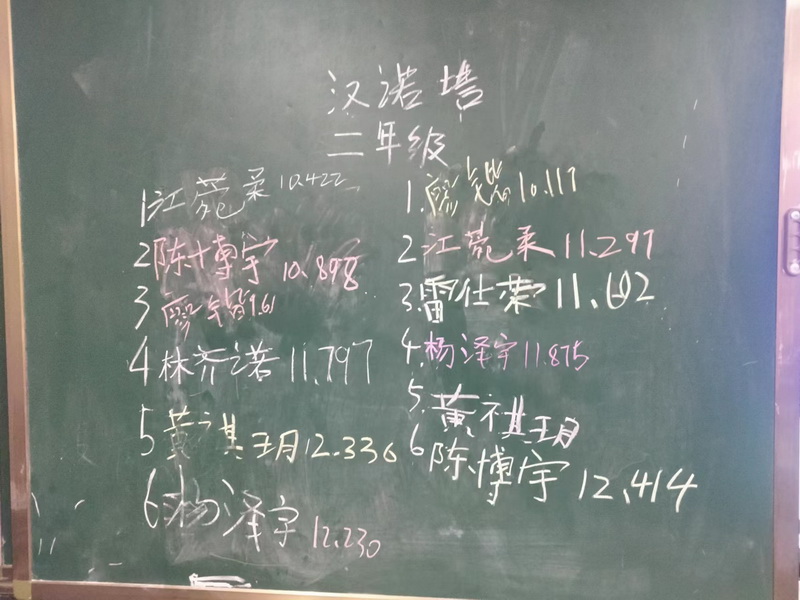 汉诺塔
二年级
1江菀柔10.422
2陈博宇10.898
3廖9.61
4林齐诺11.797
5黄祺玥12.336
6杨泽宇12.230
1.廖10.117
2江菀柔11.297
3.雷仕荣11.602
4.杨泽宇11.875
5.黄祺玥
6陈博宇12.414